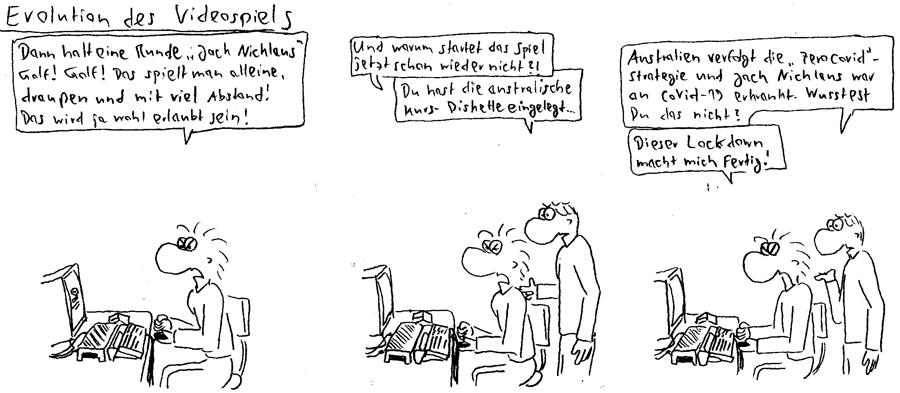 Evolution des Videospiels
Dann halt eine Runde „Jach Nichlaus"
Golf! Golf! Das spielt man alleine,
draußen und mit viel Abstand!
Das wird ja wohl erlaubt sein!
Und warum startet das Spiel
jetzt schon wieder nicht?!
Du hast die australische
Kurs-Diskette eingelegt...
Australien verfolgt die „ZeroCovid"-
strategie und Jach Nichlaus war
an Covid-19 erkrankt. Wusstest
Du das nicht?
Dieser Lockdown
macht mich fertig!